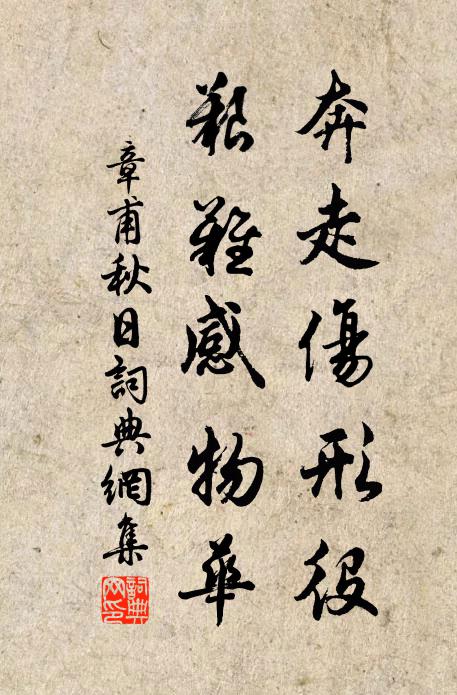 奔走傷形役
艱難感物華
章甫秋日詞典網集
詞典网印